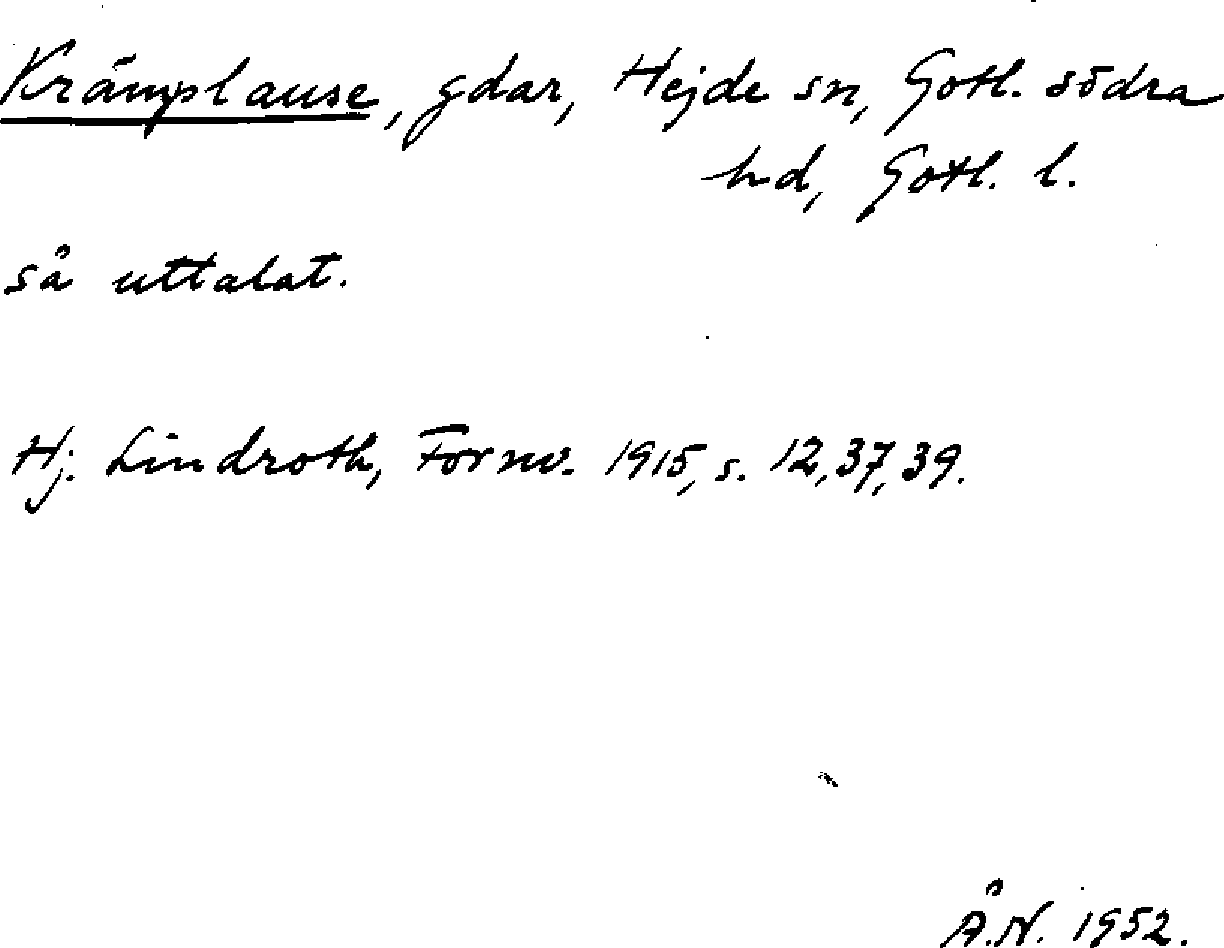 Krämplause, gdar, Hejde sn, Gotl. södra
hd, Gotl. l.
så uttalat.
Hj. Lindroth, Fornv. 1915, s. 12, 37, 39.
Å.N. 1952.